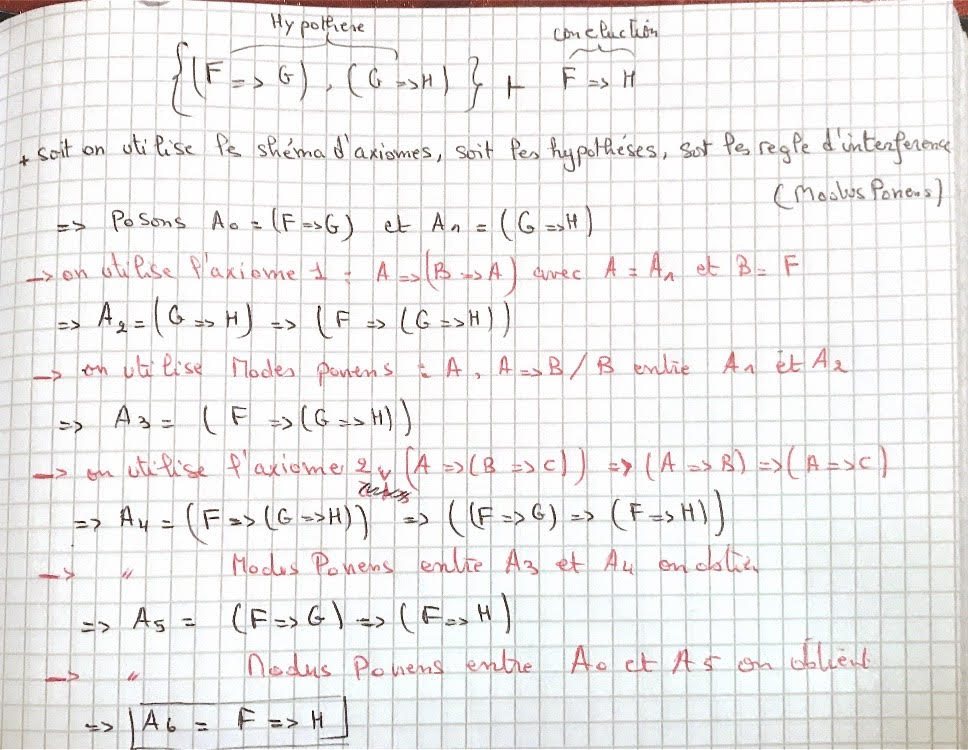 Hypothese conclusion
{(F => G), (G => H)} ⊢ F => H
* soit on utilise le shéma d'axiomes, soit les hypothéses, soit les regle d'interference
(Modus Ponens)
=> Posons A0 = (F => G) et A1 = (G => H)
-> on utilise l'axiome 1 : A => (B => A) avec A = A1 et B = F
=> A2 = (G => H) => (F => (G => H))
-> on utilise Modes ponens : A, A => B / B entre A1 et A2
=> A3 = (F => (G => H))
-> on utilise l'axiome 2 (A => (B => C)) => (A => B) => (A => C)
=> A4 = (F => (G => H)) => ((F => G) => (F => H))
-> " Modes Ponens entre A3 et A4 on obtien
=> A5 = (F => G) => (F => H)
-> " Modus Ponens entre A0 et A5 on obtient
=> A6 = F => H